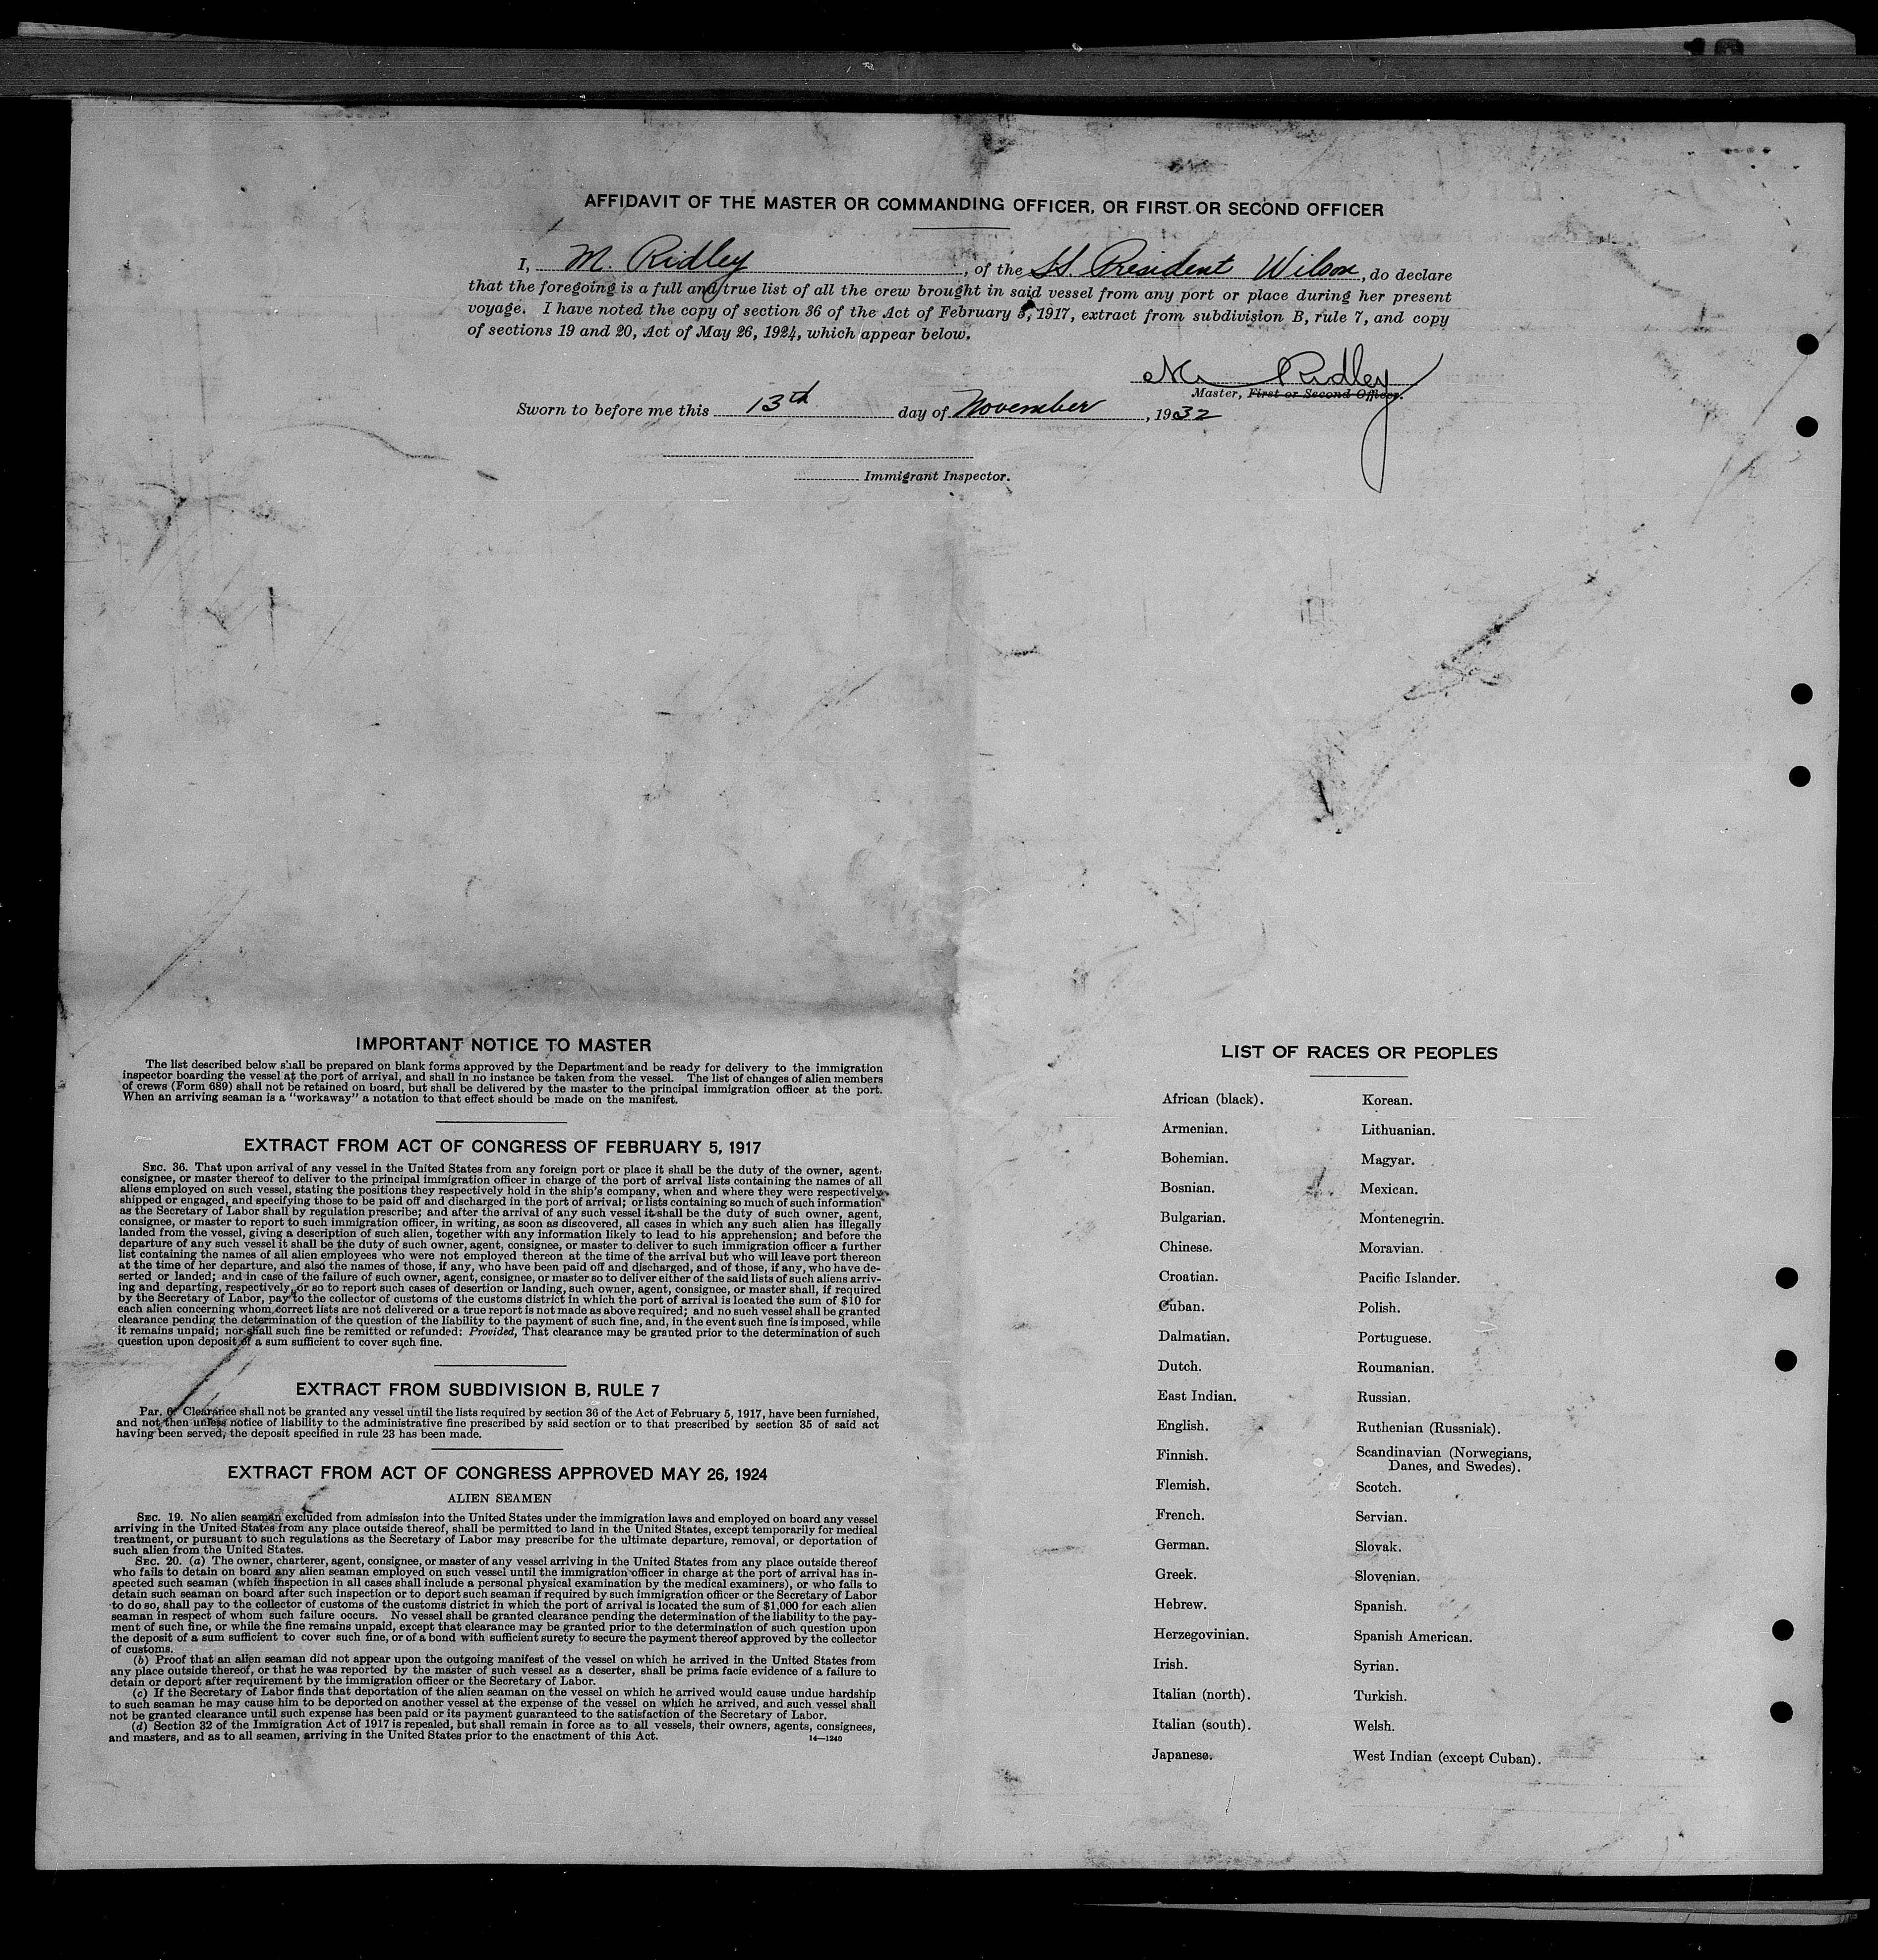 AFFIDAVIT OF THE MASTER OR COMMANDING OFFICER, OR FIRST OR SECOND OFFICER
I, M. Ridley, of the SS. President Wilson, do declare
that the foregoing is a full and true list of all the crew brought in said vessel from any port or place during her present
voyage. I have noted the copy of section 36 of the Act of February 5, 1917, extract from subdivision B, rule 7, and copy
of sections 19 and 20, Act of May 26, 1924, which appear below.
M Ridley
Master, First or Second Officer.
Sworn to before me this 13th day of November, 1932
Immigrant Inspector.
IMPORTANT NOTICE TO MASTER
The list described below shall be prepared on blank forms approved by the Department and be ready for delivery to the immigration
inspector boarding the vessel at the port of arrival, and shall in no instance be taken from the vessel. The list of changes of alien members
of crews (Form 689) shall not be retained on board, but shall be delivered by the master to the principal immigration officer at the port.
When an arriving seaman is a "workaway" a notation to that effect should be made on the manifest.
EXTRACT FROM ACT OF CONGRESS OF FEBRUARY 5, 1917
SEC. 36. That upon arrival of any vessel in the United States from any foreign port or place it shall be the duty of the owner, agent,
consignee, or master thereof to deliver to the principal immigration officer in charge of the port of arrival lists containing the names of all
aliens employed on such vessel, stating the positions they respectively hold in the ship's company, when and where they were respectively
shipped or engaged, and specifying those to be paid off and discharged in the port of arrival; or lists containing so much of such information
as the Secretary of Labor shall by regulation prescribe; and after the arrival of any such vessel it shall be the duty of such owner, agent,
consignee, or master to report to such immigration officer, in writing, as soon as discovered, all cases in which any such alien has illegally
landed from the vessel, giving a description of such alien, together with any information likely to lead to his apprehension; and before the
departure of any such vessel it shall be the duty of such owner, agent, consignee, or master to deliver to such immigration officer a further
list containing the names of all alien employees who were not employed thereon at the time of the arrival but who will leave port thereon
at the time of her departure, and also the names of those, if any, who have been paid off and discharged, and of those, if any, who have de-
serted or landed; and in case of the failure of such owner, agent, consignee, or master so to deliver either of the said lists of such aliens arriv-
ing and departing, respectively, or so to report such cases of desertion or landing, such owner, agent, consignee, or master shall, if required
by the Secretary of Labor, pay to the collector of customs of the customs district in which the port of arrival is located the sum of $10 for
each alien concerning whom correct lists are not delivered or a true report is not made as above required; and no such vessel shall be granted
clearance pending the determination of the question of the liability to the payment of such fine, and, in the event such fine is imposed, while
it remains unpaid; nor shall such fine be remitted or refunded: Provided, That clearance may be granted prior to the determination of such
question upon deposit of a sum sufficient to cover such fine.
EXTRACT FROM SUBDIVISION B, RULE 7
Par. 6. Clearance shall not be granted any vessel until the lists required by section 36 of the Act of February 5, 1917, have been furnished,
and not then unless notice of liability to the administrative fine prescribed by said section or to that prescribed by section 35 of said act
having been served, the deposit specified in rule 23 has been made.
EXTRACT FROM ACT OF CONGRESS APPROVED MAY 26, 1924
ALIEN SEAMEN
SEC. 19. No alien seaman excluded from admission into the United States under the immigration laws and employed on board any vessel
arriving in the United States from any place outside thereof, shall be permitted to land in the United States, except temporarily for medical
treatment, or pursuant to such regulations as the Secretary of Labor may prescribe for the ultimate departure, removal, or deportation of
such alien from the United States.
SEC. 20. (a) The owner, charterer, agent, consignee, or master of any vessel arriving in the United States from any place outside thereof
who fails to detain on board any alien seaman employed on such vessel until the immigration officer in charge at the port of arrival has in-
spected such seaman (which inspection in all cases shall include a personal physical examination by the medical examiners), or who fails to
detain such seaman on board after such inspection or to deport such seaman if required by such immigration officer or the Secretary of Labor
to do so, shall pay to the collector of customs of the customs district in which the port of arrival is located the sum of $1,000 for each alien
seaman in respect of whom such failure occurs. No vessel shall be granted clearance pending the determination of the liability to the pay-
ment of such fine, or while the fine remains unpaid, except that clearance may be granted prior to the determination of such question upon
the deposit of a sum sufficient to cover such fine, or of a bond with sufficient surety to secure the payment thereof approved by the collector
of customs.
(b) Proof that an alien seaman did not appear upon the outgoing manifest of the vessel on which he arrived in the United States from
any place outside thereof, or that he was reported by the master of such vessel as a deserter, shall be prima facie evidence of a failure to
detain or deport after requirement by the immigration officer or the Secretary of Labor.
(c) If the Secretary of Labor finds that deportation of the alien seaman on the vessel on which he arrived would cause undue hardship
to such seaman he may cause him to be deported on another vessel at the expense of the vessel on which he arrived, and such vessel shall
not be granted clearance until such expense has been paid or its payment guaranteed to the satisfaction of the Secretary of Labor.
(d) Section 32 of the Immigration Act of 1917 is repealed, but shall remain in force as to all vessels, their owners, agents, consignees,
and masters, and as to all seamen, arriving in the United States prior to the enactment of this Act.
14—1240
LIST OF RACES OR PEOPLES
African (black).
Armenian.
Bohemian.
Bosnian.
Bulgarian.
Chinese.
Croatian.
Cuban.
Dalmatian.
Dutch.
East Indian.
English.
Finnish.
Flemish.
French.
German.
Greek.
Hebrew.
Herzegovinian.
Irish.
Italian (north).
Italian (south).
Japanese.
Korean.
Lithuanian.
Magyar.
Mexican.
Montenegrin.
Moravian.
Pacific Islander.
Polish.
Portuguese.
Roumanian.
Russian.
Ruthenian (Russniak).
Scandinavian (Norwegians,
Danes, and Swedes).
Scotch.
Servian.
Slovak.
Slovenian.
Spanish.
Spanish American.
Syrian.
Turkish.
Welsh.
West Indian (except Cuban).